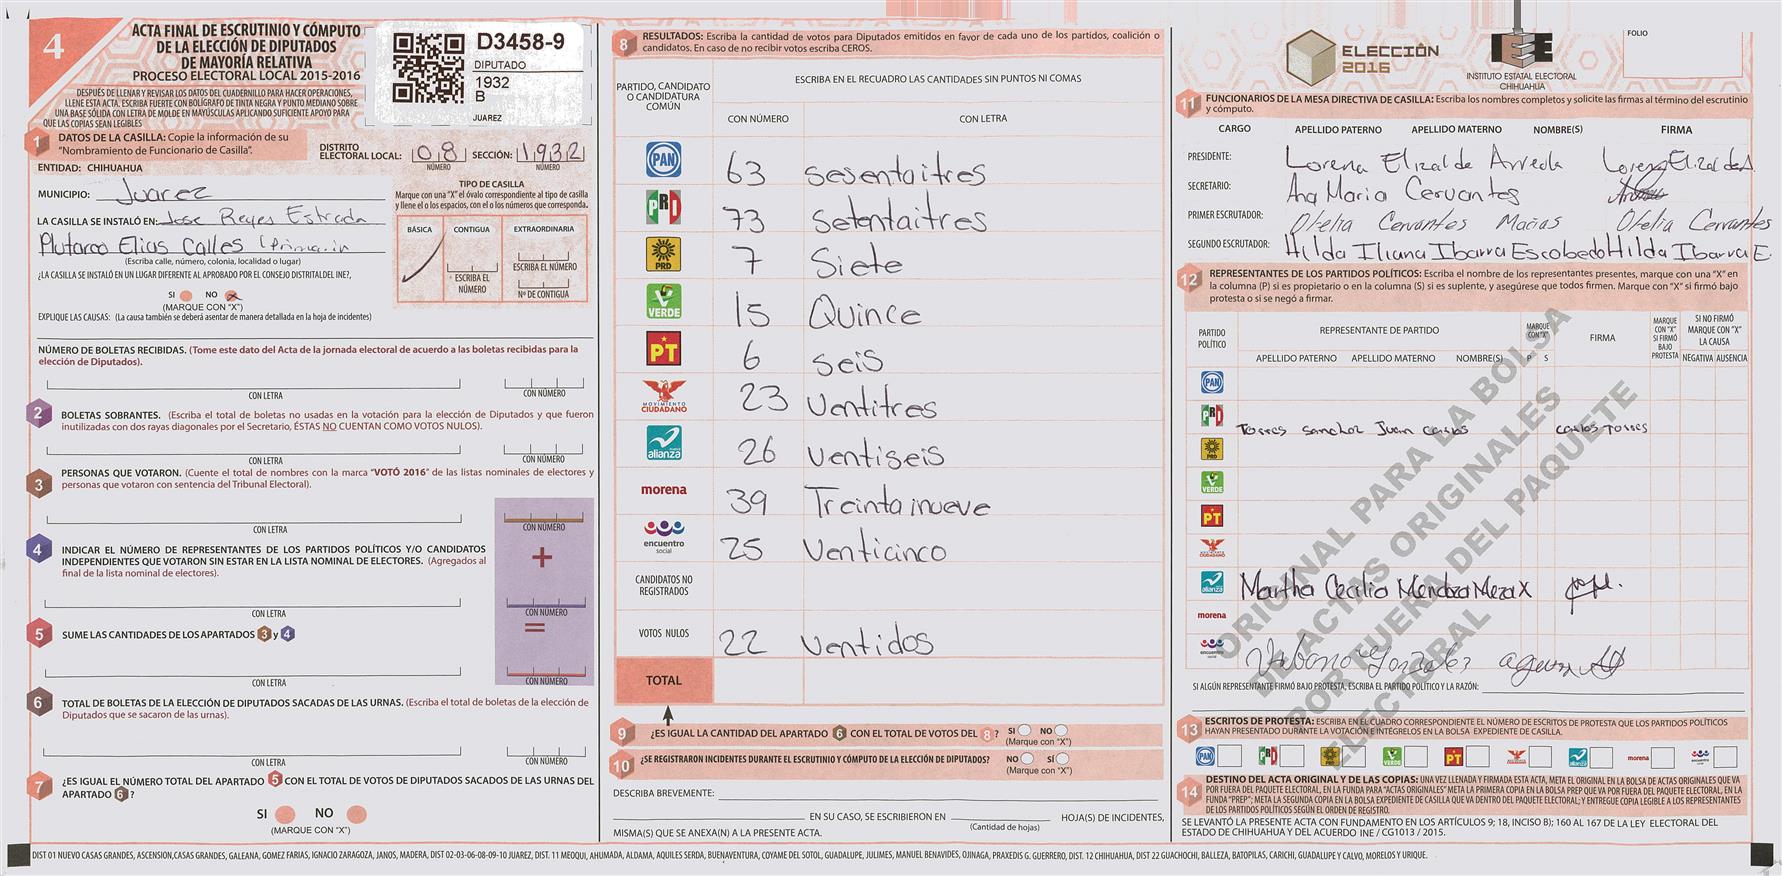 4
ACTA FINAL DE ESCRUTINIO Y CÓMPUTO
DE LA ELECCIÓN DE DIPUTADOS
DE MAYORÍA RELATIVA
PROCESO ELECTORAL LOCAL 2015-2016
DESPUÉS DE LLENAR Y REVISAR LOS DATOS DEL CUADERNILLO PARA HACER OPERACIONES,
LLENE ESTA ACTA, ESCRIBA FUERTE CON BOLÍGRAFO DE TINTA NEGRA Y PUNTO MEDIANO SOBRE
UNA BASE SÓLIDA CON LETRA DE MOLDE EN MAYÚSCULAS APLICANDO SUFICIENTE APOYO PARA
QUE LAS COPIAS SEAN LEGIBLES
D3458-9
DIPUTADO
1932
B
JUAREZ
1 DATOS DE LA CASILLA: Copie la información de su
"Nombramiento de Funcionario de Casilla".
DISTRITO
ELECTORAL LOCAL: 08 SECCIÓN: 1932
NÚMERO NÚMERO
ENTIDAD: CHIHUAHUA
MUNICIPIO: Juarez
LA CASILLA SE INSTALÓ EN: Jose Reyes Estrada
Plutarco Elias Calles (Primaria
(Escriba calle, número, colonia, localidad o lugar)
¿LA CASILLA SE INSTALÓ EN UN LUGAR DIFERENTE AL APROBADO POR EL CONSEJO DISTRITAL DEL INE?,
SI NO X
(MARQUE CON "X")
EXPLIQUE LAS CAUSAS: (La causa también se deberá asentar de manera detallada en la hoja de incidentes)
TIPO DE CASILLA
Marque con una "X" el óvalo correspondiente al tipo de casilla
y llene el o los espacios, con el o los números que corresponda.
BÁSICA CONTIGUA EXTRAORDINARIA
ESCRIBA EL NÚMERO
ESCRIBA EL NÚMERO
Nº DE CONTIGUA
NÚMERO DE BOLETAS RECIBIDAS. (Tome este dato del Acta de la jornada electoral de acuerdo a las boletas recibidas para la
elección de Diputados).
CON LETRA CON NÚMERO
2 BOLETAS SOBRANTES. (Escriba el total de boletas no usadas en la votación para la elección de Diputados y que fueron
inutilizadas con dos rayas diagonales por el Secretario, ÉSTAS NO CUENTAN COMO VOTOS NULOS).
CON LETRA CON NÚMERO
3 PERSONAS QUE VOTARON. (Cuente el total de nombres con la marca "VOTÓ 2016" de las listas nominales de electores y
personas que votaron con sentencia del Tribunal Electoral).
CON LETRA CON NÚMERO
+
4 INDICAR EL NÚMERO DE REPRESENTANTES DE LOS PARTIDOS POLÍTICOS Y/O CANDIDATOS
INDEPENDIENTES QUE VOTARON SIN ESTAR EN LA LISTA NOMINAL DE ELECTORES. (Agregados al
final de la lista nominal de electores).
CON LETRA CON NÚMERO
=
5 SUME LAS CANTIDADES DE LOS APARTADOS 3 y 4
CON LETRA CON NÚMERO
6 TOTAL DE BOLETAS DE LA ELECCIÓN DE DIPUTADOS SACADAS DE LAS URNAS. (Escriba el total de boletas de la elección de
Diputados que se sacaron de las urnas).
CON LETRA CON NÚMERO
7 ¿ES IGUAL EL NÚMERO TOTAL DEL APARTADO 5 CON EL TOTAL DE VOTOS DE DIPUTADOS SACADOS DE LAS URNAS DEL
APARTADO 6?
SI NO
(MARQUE CON "X")
8 RESULTADOS: Escriba la cantidad de votos para Diputados emitidos en favor de cada uno de los partidos, coalición o
candidatos. En caso de no recibir votos escriba CEROS.
PARTIDO, CANDIDATO
O CANDIDATURA
COMÚN
ESCRIBA EN EL RECUADRO LAS CANTIDADES SIN PUNTOS NI COMAS
CON NÚMERO CON LETRA
PAN 63 Sesentaitres
PRI 73 Setentaitres
PRD 7 Siete
VERDE 15 Quince
PT 6 Seis
MOVIMIENTO CIUDADANO 23 Ventitres
alianza 26 Ventiseis
morena 39 Treintainueve
encuentro social 25 Venticinco
CANDIDATOS NO
REGISTRADOS
VOTOS NULOS 22 Ventidos
TOTAL
9 ¿ES IGUAL LA CANTIDAD DEL APARTADO 6 CON EL TOTAL DE VOTOS DEL 8? SI NO
(Marque con "X")
10 ¿SE REGISTRARON INCIDENTES DURANTE EL ESCRUTINIO Y CÓMPUTO DE LA ELECCIÓN DE DIPUTADOS? NO SÍ
(Marque con "X")
DESCRIBA BREVEMENTE:
EN SU CASO, SE ESCRIBIERON EN HOJA(S) DE INCIDENTES,
(Cantidad de hojas)
MISMA(S) QUE SE ANEXA(N) A LA PRESENTE ACTA.
ELECCIÓN
2016
IEE
INSTITUTO ESTATAL ELECTORAL
CHIHUAHUA
FOLIO
11 FUNCIONARIOS DE LA MESA DIRECTIVA DE CASILLA: Escriba los nombres completos y solicite las firmas al término del escrutinio
y cómputo.
CARGO APELLIDO PATERNO APELLIDO MATERNO NOMBRE(S) FIRMA
PRESIDENTE: Lorena Elizalde Arreola Lorena Elizalde A.
SECRETARIO: Ana Maria Cervantes
PRIMER ESCRUTADOR: Ofelia Cervantes Macias Ofelia Cervantes
SEGUNDO ESCRUTADOR: Hilda Iliana Ibarra Escobedo Hilda Ibarra E.
12 REPRESENTANTES DE LOS PARTIDOS POLÍTICOS: Escriba el nombre de los representantes presentes, marque con una "X" en
la columna (P) si es propietario o en la columna (S) si es suplente, y asegúrese que todos firmen. Marque con "X" si firmó bajo
protesta o si se negó a firmar.
PARTIDO
POLÍTICO
REPRESENTANTE DE PARTIDO
APELLIDO PATERNO APELLIDO MATERNO NOMBRE(S)
MARQUE
CON "X"
P S
FIRMA
MARQUE
CON "X"
SI FIRMÓ
BAJO
PROTESTA
SI NO FIRMÓ
MARQUE CON "X"
LA CAUSA
NEGATIVA AUSENCIA
PAN
PRI Torres Sanchez Juan Carlos Carlos Torres
PRD
VERDE
PT
alianza Martha Cecilia Mendoza Meza X
morena
encuentro social
ORIGINAL PARA LA BOLSA
DE ACTAS ORIGINALES
POR FUERA DEL PAQUETE
ELECTORAL
SI ALGÚN REPRESENTANTE FIRMÓ BAJO PROTESTA, ESCRIBA EL PARTIDO POLÍTICO Y LA RAZÓN:
13 ESCRITOS DE PROTESTA: ESCRIBA EN EL CUADRO CORRESPONDIENTE EL NÚMERO DE ESCRITOS DE PROTESTA QUE LOS PARTIDOS POLÍTICOS
HAYAN PRESENTADO DURANTE LA VOTACIÓN E INTÉGRELOS EN LA BOLSA EXPEDIENTE DE CASILLA.
PAN PRI PRD VERDE PT alianza morena
14 DESTINO DEL ACTA ORIGINAL Y DE LAS COPIAS: UNA VEZ LLENADA Y FIRMADA ESTA ACTA, META EL ORIGINAL EN LA BOLSA DE ACTAS ORIGINALES QUE VA
POR FUERA DEL PAQUETE ELECTORAL, EN LA FUNDA PARA "ACTAS ORIGINALES" META LA PRIMERA COPIA EN LA BOLSA PREP QUE VA POR FUERA DEL PAQUETE ELECTORAL, EN LA
FUNDA "PREP"; META LA SEGUNDA COPIA EN LA BOLSA EXPEDIENTE DE CASILLA QUE VA DENTRO DEL PAQUETE ELECTORAL; Y ENTREGUE COPIA LEGIBLE A LOS REPRESENTANTES
DE LOS PARTIDOS POLÍTICOS SEGÚN EL ORDEN DE REGISTRO.
SE LEVANTÓ LA PRESENTE ACTA CON FUNDAMENTO EN LOS ARTÍCULOS 9; 18, INCISO B); 160 AL 167 DE LA LEY ELECTORAL DEL
ESTADO DE CHIHUAHUA Y DEL ACUERDO INE / CG1013 / 2015.
DIST 01 NUEVO CASAS GRANDES, ASCENSION,CASAS GRANDES, GALEANA, GOMEZ FARIAS, IGNACIO ZARAGOZA, JANOS, MADERA, DIST 02-03-06-08-09-10 JUAREZ, DIST. 11 MEOQUI, AHUMADA, ALDAMA, AQUILES SERDA, BUENAVENTURA, COYAME DEL SOTOL, GUADALUPE, JULIMES, MANUEL BENAVIDES, OJINAGA, PRAXEDIS G. GUERRERO, DIST. 12 CHIHUAHUA, DIST 22 GUACHOCHI, BALLEZA, BATOPILAS, CARICHI, GUADALUPE Y CALVO, MORELOS Y URIQUE.